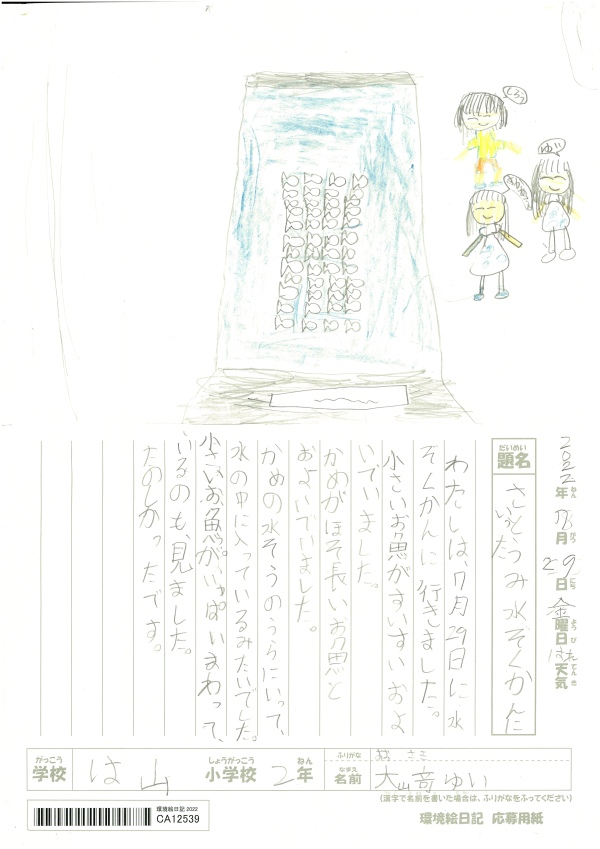 しろう
ゆい
2022年7月29日金曜日はれ天気
ねん
がつ
にち
ようび
てんき
だいめい
題名
さいとうみ水ぞくかんに
いった
わたしは、7月29日に水
ぞくかんに行きました。
小さいお魚がすいすいおよ
いでいました。
かめがほそ長いお魚と
およいでいました。
かめの水そうのうらにいって、
水の中に入っているみたいでした。
小さいお魚が、いっぱいまわって、
いるのも、見ました。
たのしかったです。
がっこう
学校
は山
しょうがっこう
小学校
2
ねん
年
ふりがな
なまえ
名前
大山奇ゆい
(漢字で名前を書いた場合は、ふりがなをふってください)
環境絵日記2022
CA12539
環境絵日記 応募用紙